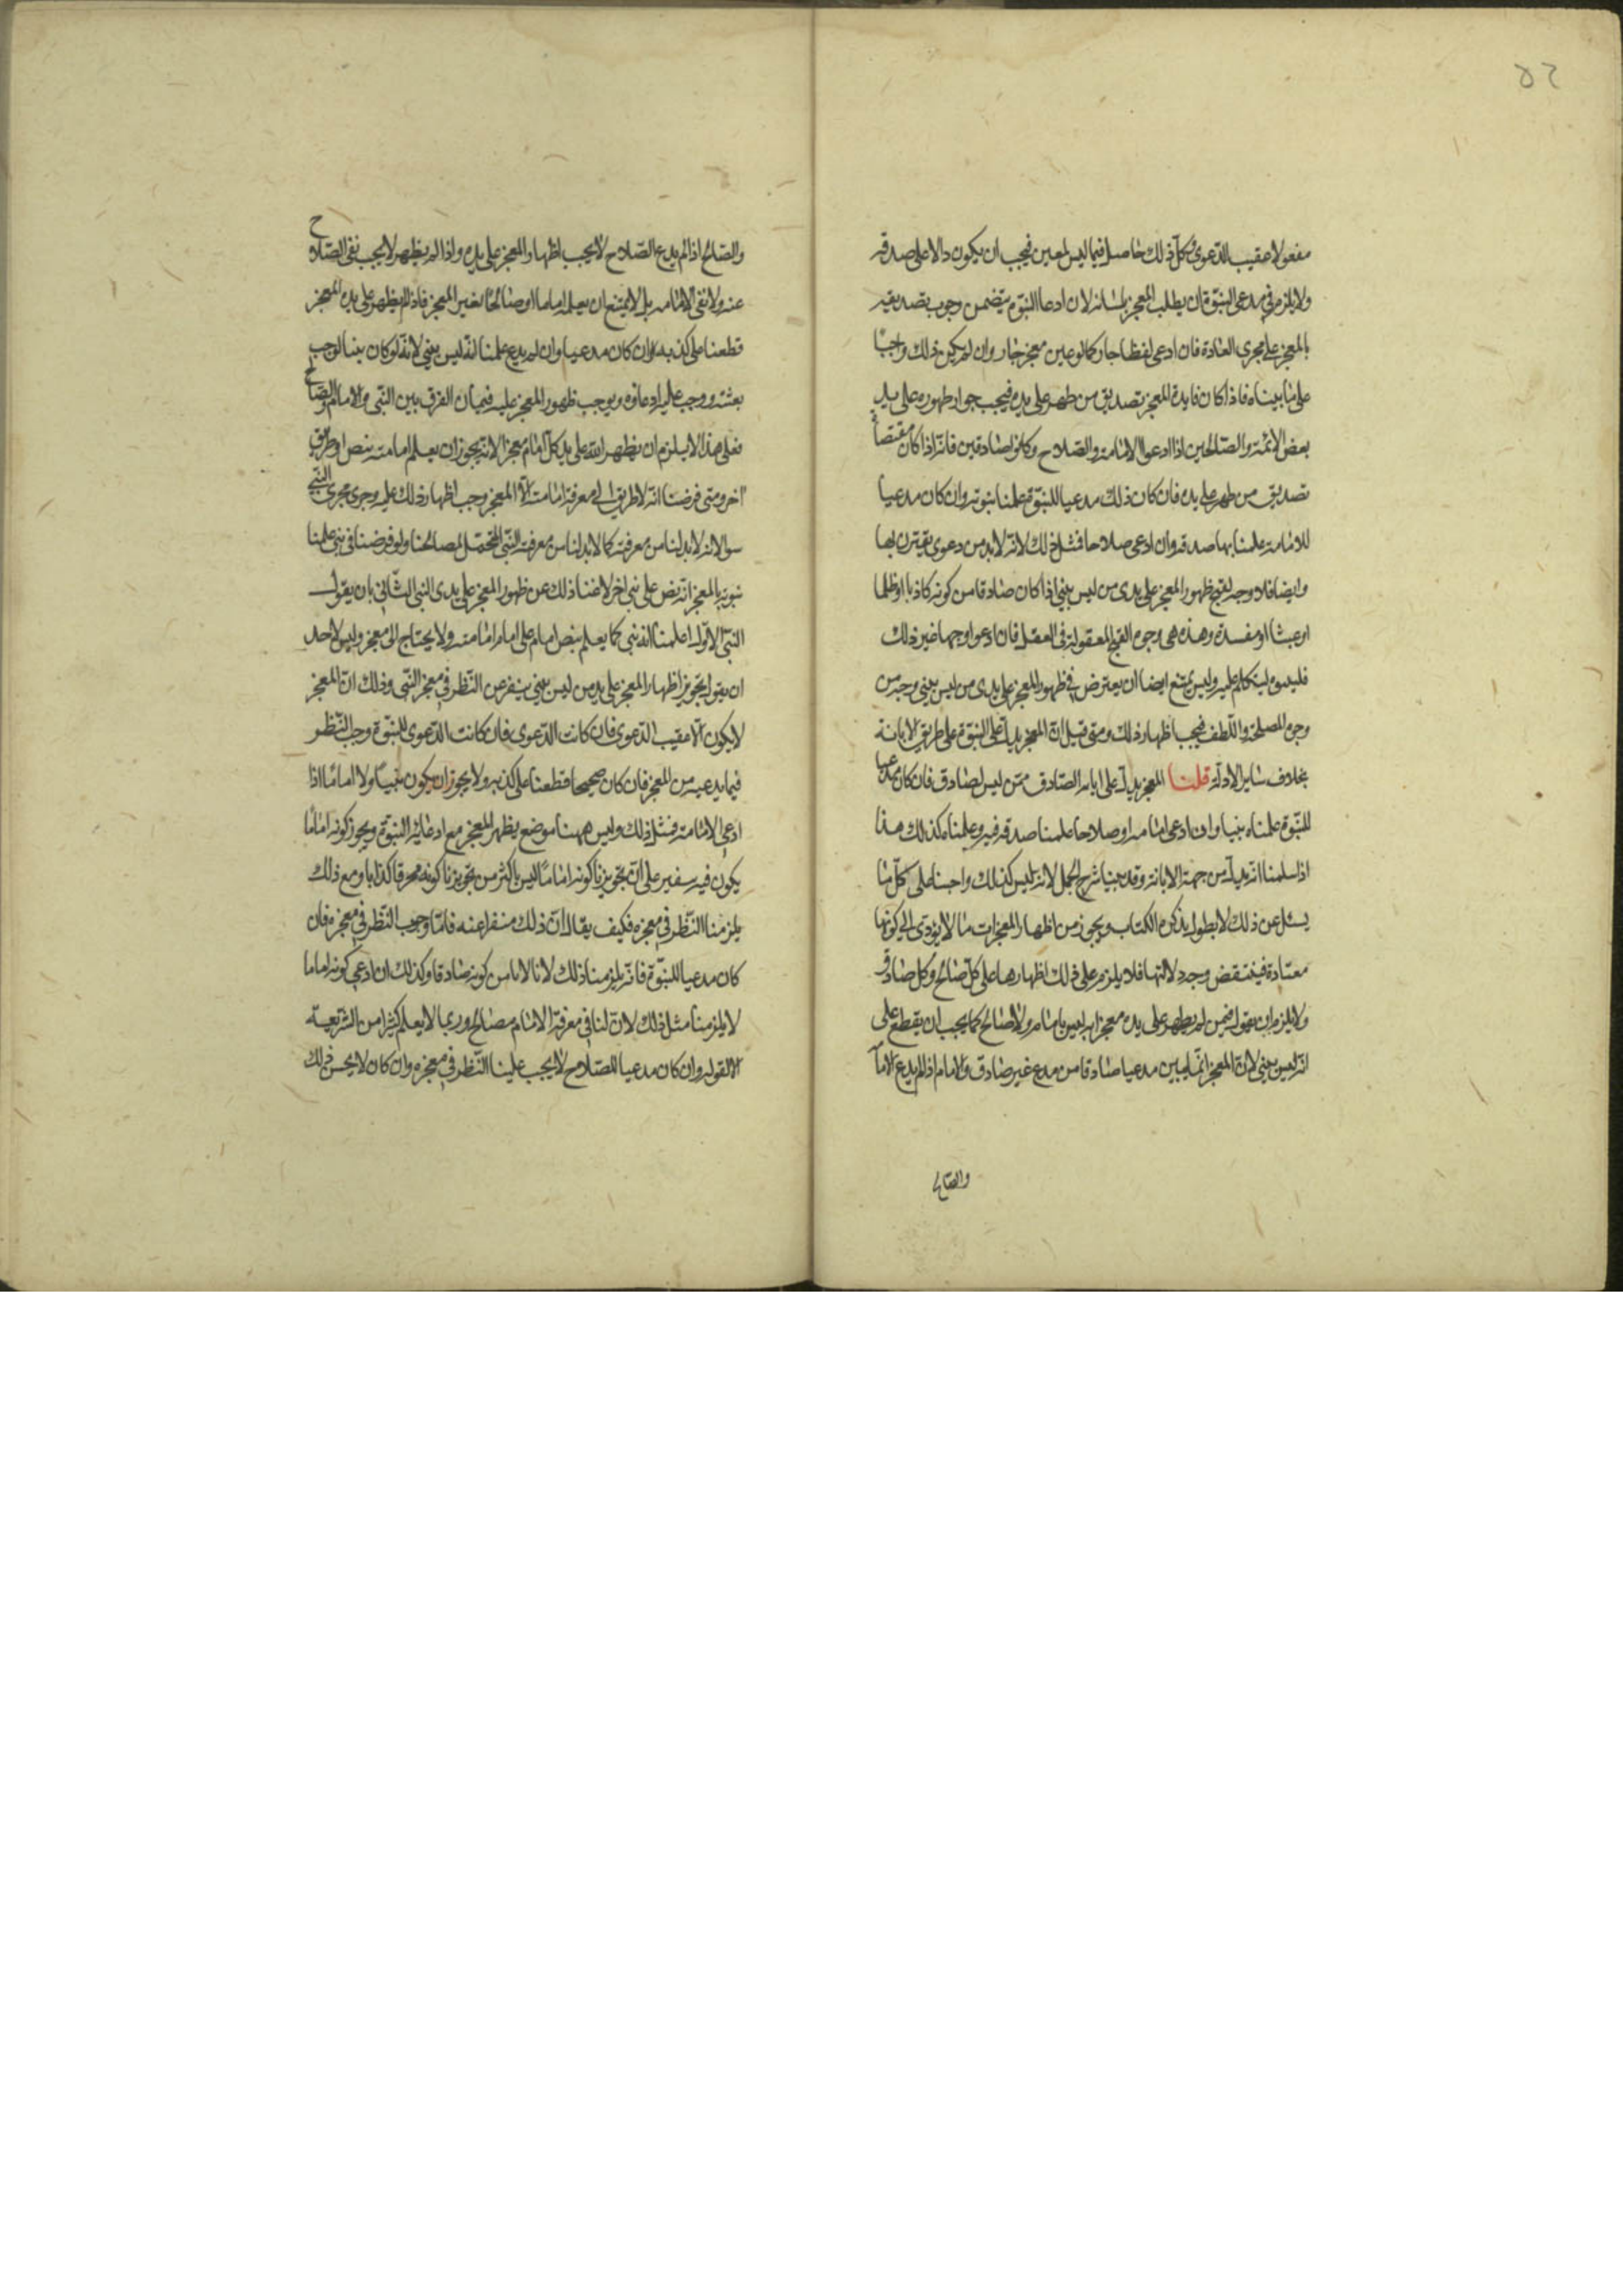 ٥٢
مفعولا عقيب الدعوى وكل ذلك حاصل فيما ليس لمعين فيجب ان يكون دالا على صدقه
ولا يلزم في مدعى النبوة ان يطلب المعجز بلسانه لان ادعا النبوة يتضمن وجوب تصديقه
بالمعجز على مجرى العادة فان ادعى لفظا جاز كما لو عين معجز جاز وان لم يكن ذلك واجبا
على ما بيناه فاذا كان فايدة المعجز تصديق من ظهر على يده فيجب جواز ظهوره على يد
بعض الائمة والصالحين اذا ادعوا الامامة والصلاح وكانوا صادقين فانه اذا كان مقتضاه
تصديق من ظهر على يده فان كان ذلك مدعيا للنبوة علمنا نبوته وان كان مدعيا
للامامة علمنا بها صدقه وان ادعى صلاحا فمثل ذلك لانه لا بد من دعوى يقترن بها
وايضا فلا وجه لقبح ظهور المعجز على يدى من ليس بنبي اذا كان صادقا من كونه كاذبا او ظلما
او عبثا او مفسدة وهذه هى وجوه القبح المعقولة فى العقل فان ادعوا وجها غير ذلك
فليبينوه ليتكلم عليه وليس يمتنع ايضا ان يعترض فى ظهور المعجز على يدى من ليس بنبي وجه من
وجوه المصلحة واللطف فيجب اظهار ذلك ومتى قيل ان المعجز يدل على النبوة على طريق الابانة
بخلاف ساير الادلة قلنا المعجز يدل على ابانة الصادق ممن ليس لصادق فان كان مدعيا
للنبوة علمناه نبيا وان ادعى امامة او صلاحا علمنا صدقه فيه وعلمناه كذلك هذا
اذا سلمنا انه يدل من جهة الابانة وقد بينا شرح الجمل لانه ليس كذلك واجبنا على كل ما
يسئل عن ذلك لا يطول بذكره الكتاب ويجوز من اظهار المعجزات ما لا يؤدى الى كونها
معتادة فينتقض وجه دلالتها فلا يلزم على ذلك اظهارها على كل صالح وكل صادق
ولا يلزم ان نقول فيمن لم يظهر على يده معجز انه ليس بامام ولا صالح كما يجب ان يقطع على
انه ليس بنبي لان المعجز انما يبين مدعيا صادقا من مدع غير صادق والامام اذا لم يدع الاما
والصالح
والصالح اذا لم يدع الصلاح لا يجب اظهار المعجز على يده واذا لم يظهر لا يجب نفى الصلاح
عنه ولا نفى الامامة بل لا يمتنع ان يعلم اماما او صالحا بغير المعجز فاذا لم يظهر على يده المعجز
قطعنا على كذبه وان كان مدعيا وان لم يدع علمنا انه ليس بنبي لانه لو كان بينا لوجب
بعثته ووجب عليه ادعاؤه ويوجب ظهور المعجز عليه فبان الفرق بين النبى والامام والصالح
فعلى هذا لا يلزم ان يظهر الله على يد كل امام معجز الانه يجوز ان يعلم امامته بنص او طريق
اخر ومتى فرضنا انه لا طريق الى معرفة امامته الا المعجز وجب اظهار ذلك عليه وجرى مجرى النبى
سوا لانه لا بد لنا من معرفته كما لا بد لنا من معرفة النبى المتحمل لمصالحنا ولو فرضنا فى نبى علمنا
نبوته بالمعجز انه نص على نبى اخر لاغنا ذلك عن ظهور المعجز على يدى النبى الثانى بان يقول
النبى الاول اعلمنا انه نبى كما يعلم بنص امام على امام امامته ولا يحتاج الى معجز وليس لاحد
ان يقول تجويز اظهار المعجز على يد من ليس بنبي ينفر عن النظر فى معجز النبى وذلك ان المعجز
لا يكون الا عقيب الدعوى فان كانت الدعوى فان كانت الدعوى للنبوة وجب النظر
فيما يدعيه من المعجز فان كان صحيحا قطعنا على كذبه ولا يجوز ان يكون نبيا ولا اماما اذا
ادعى الامامة فمثل ذلك وليس ههنا موضع يظهر المعجز مع ادعائه النبوة ويجوز كونه اماما
يكون فيه سفير على ان تجويزنا كونه اماما ليس باكثر من تجويزنا كونه محرقا كذابا ومع ذلك
يلزمنا النظر فى معجزه فكيف يقال ان ذلك منفرا عنه فاما وجوب النظر فى معجزه فان
كان مدعيا للنبوة فانه يلزمنا ذلك لانا لا نامن كونه صادقا وكذلك ان ادعى كونه اماما
لا يلزمنا مثل ذلك لان لنا فى معرفة الامام مصالح وربما لا يعلم كثيرا من الشريعة
الا لقوله وان كان مدعيا للصلاح لا يجب علينا النظر فى معجزه وان كان لا يحسن ذلك